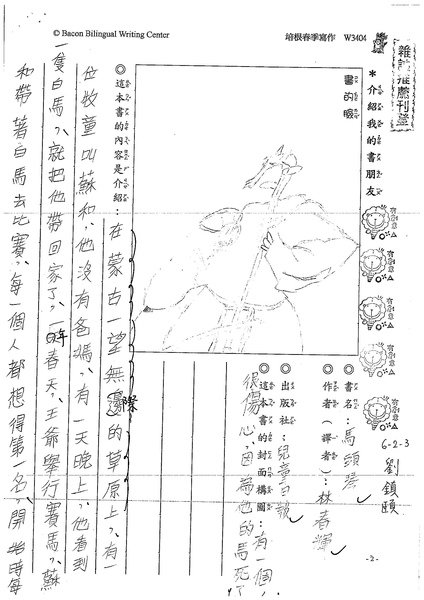 © Bacon Bilingual Writing Center
培根春季寫作 W3404
雜誌推薦刊登
＊介紹我的書朋友
書的臉
有創意
有創意
有創意
有創意
有創意
6-2-3
劉鎮頤
◎書名：馬頭琴
◎作者(譯者)：林春輝
◎出版社：兒童日報
◎這本書的封面構圖：有一個人
很傷心，因為他的馬死了
◎這本書的內容是介紹：在蒙古一望無際的草原上，有一
位牧童叫蘇和，他沒有爸媽，有一天晚上，他看到
一隻白馬，就把他帶回家了，一年春天，王爺舉行賽馬，蘇
和帶著白馬去比賽，每一個人都想得第一名，開始時每
-2-